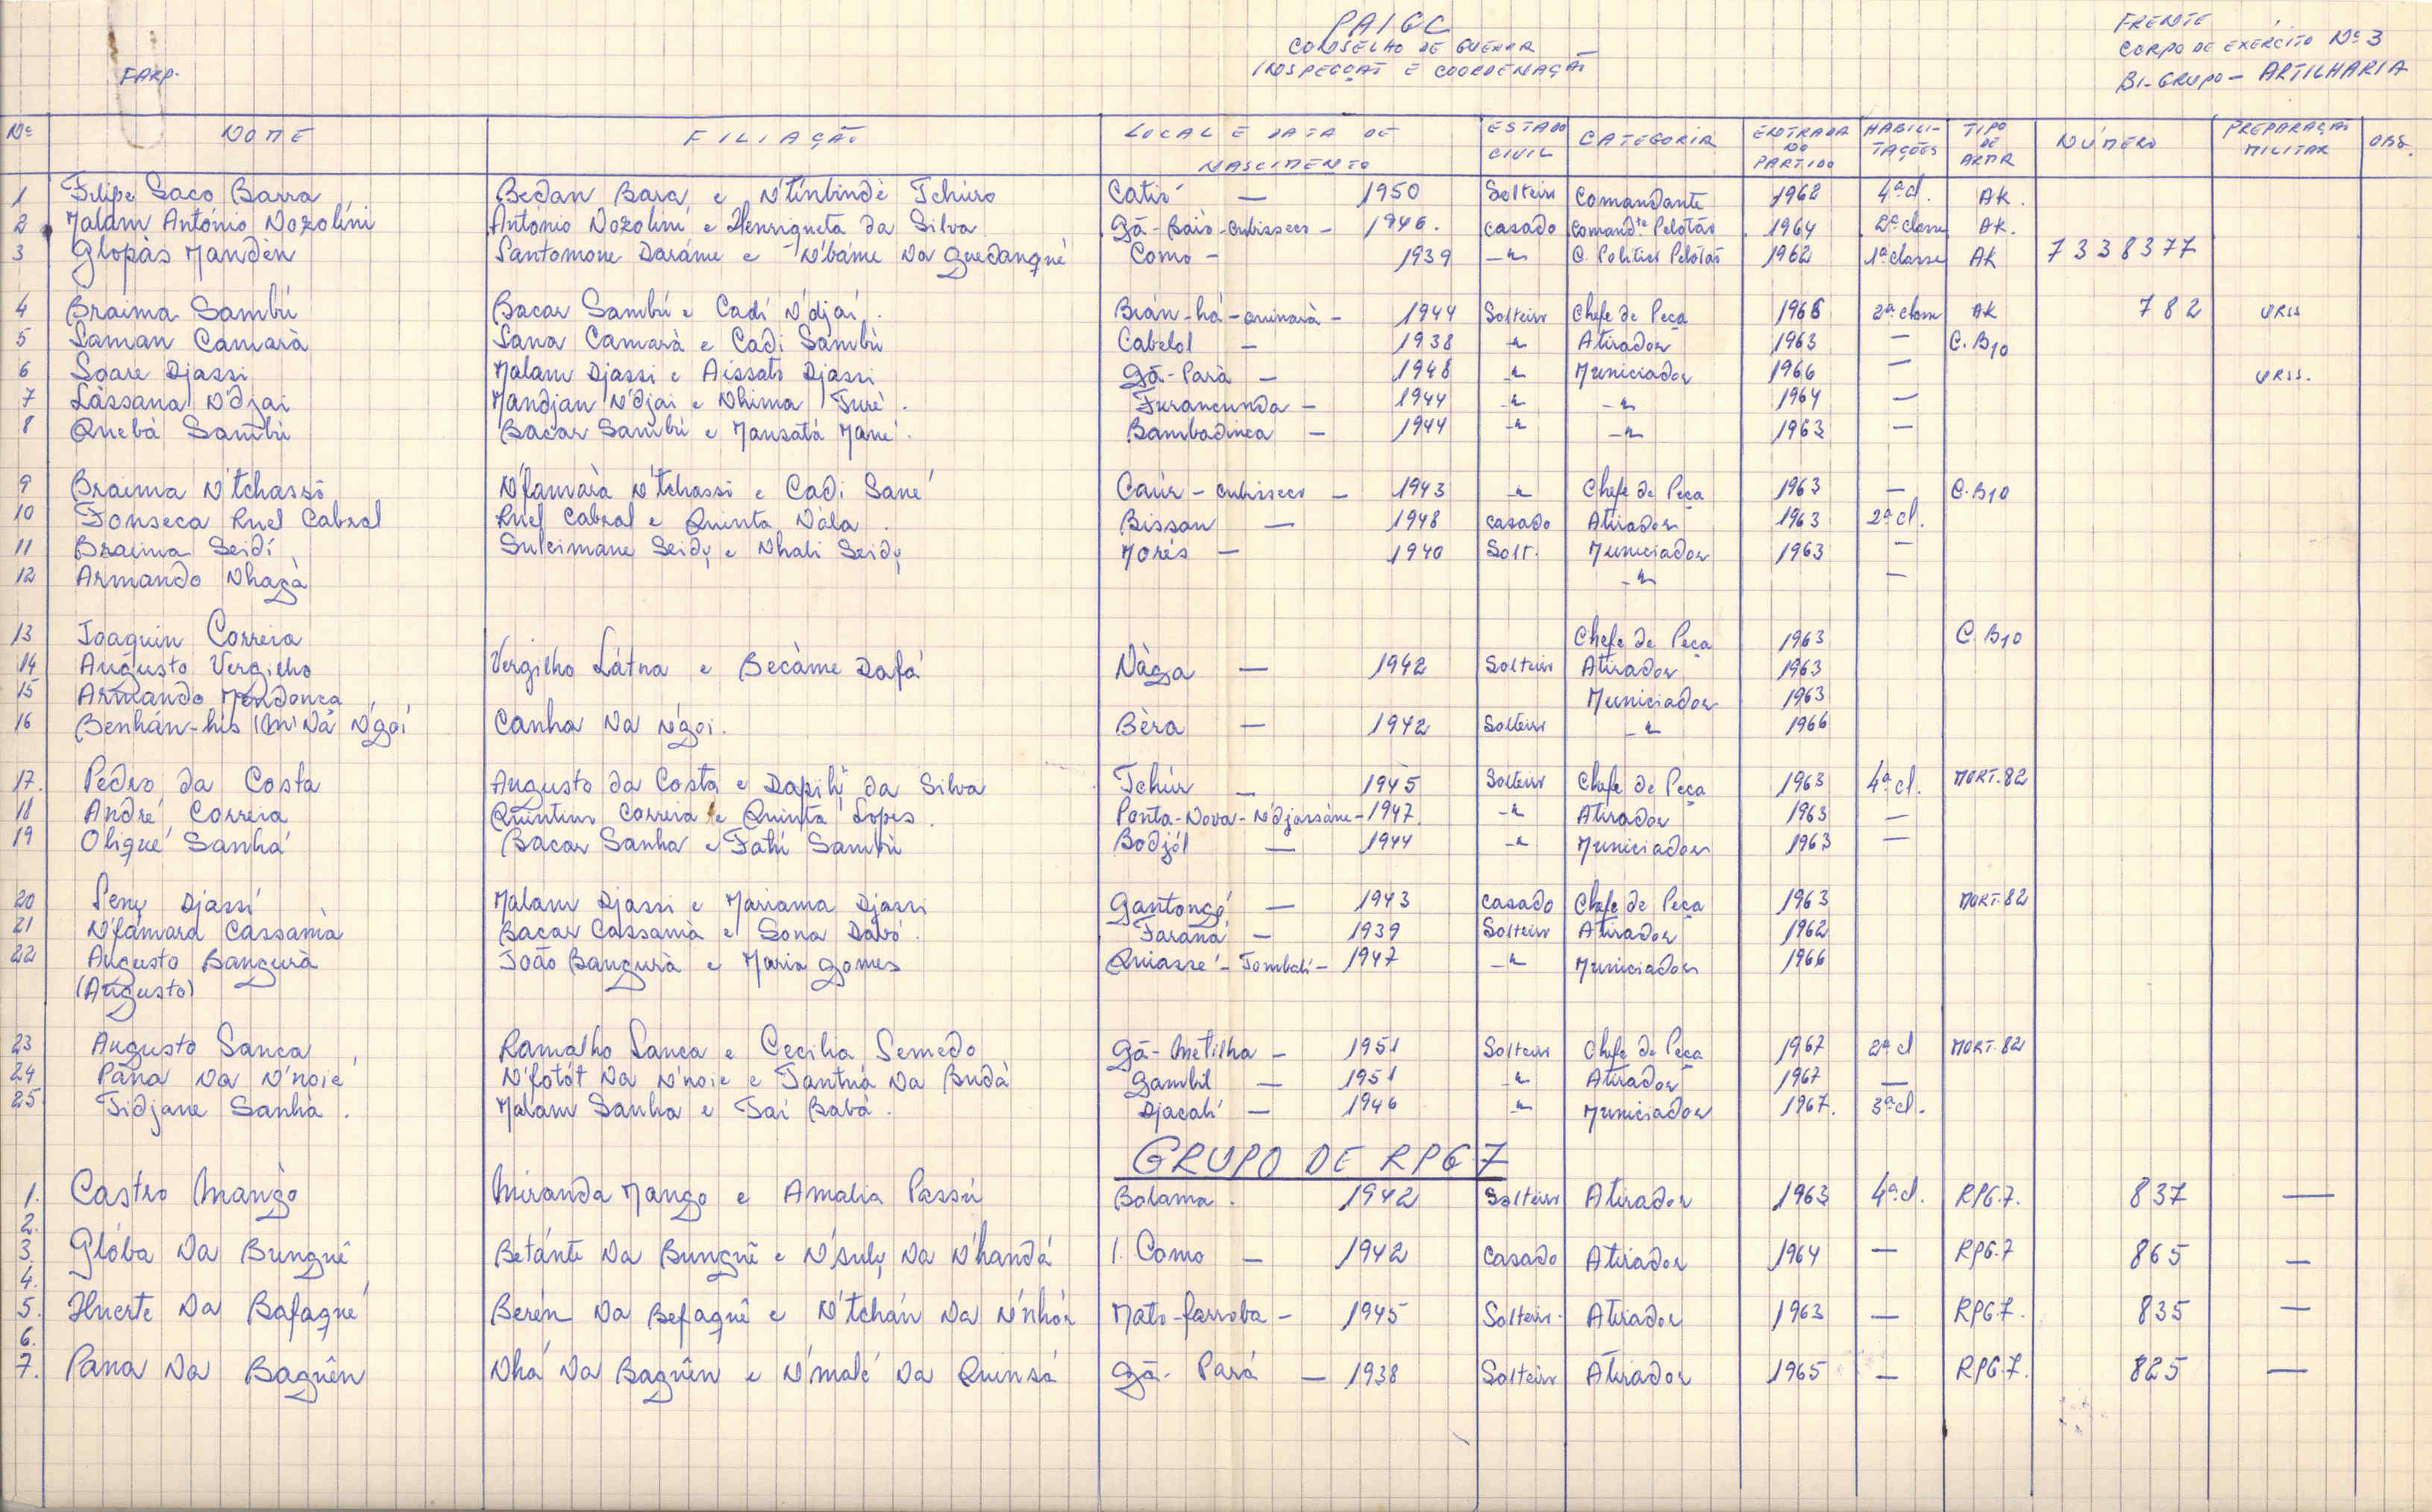 PAIGC
CONSELHO DE GUERRA
INSPECÇAÕ E COORDENAÇAÕ
FARP.
FRENTE
CORPO DE EXÉRCITO Nº 3
BI-GRUPO - ARTILHARIA
Nº NOME FILIAÇÃO LOCAL E DATA DE NASCIMENTO ESTADO CIVIL CATEGORIA ENTRADA NO PARTIDO HABILI-TAÇÕES TIPO DE ARMA NÚMERO PREPARAÇAÕ MILITAR OBS.
1 Filipe Saco Barra Bedan Bara e N'tinbindè Tchúro Catió — 1950 Solteiro Comandante 1962 4ª cl. AK.
2 Malam António Nozolíni António Nozolini e Henriqueta da Silva Gã-Baiò-cubisseco - 1946. casado comandte Pelotão 1964 2ª classe AK.
3 Glopàs Mandèn Santomone Daráme e N'báme Na Guedanqué Como - 1939 -"- C. Politico Pelotaõ 1962 1ª classe AK 7338377
4 Braima Sambú Bacar Sambú e Cadí N'djaí. Bián-há-quinarà - 1944 Solteiro Chefe de Peça 1966 2ª classe AK 782 URSS
5 Saman Camarà Sana Camarà e Cadi Sambù Cabelol — 1938 -"- Atirador 1963 — C.B10
6 Sòare Djassi Malam Djassi e Aissatò Djassi Gã-Parà — 1948 -"- Municiador 1966 — URSS.
7 Làssana N'djai Mandjan N'djai e Nhima Turé. Furancunda — 1944 -"- -"- 1964 —
8 Quebà Sambù Bacar Sambú e Mansatá Mané. Bambadinca — 1944 -"- -"- 1963 —
9 Braima N'tchassô N'famarà N'tchassô e Cadi Sané Caúr - cubisseco — 1943 -"- Chefe de Peça 1963 — C.B10
10 Fonseca Ruel Cabral Ruel Cabral e Quinta Nàla. Bissau — 1948 casado Atirador 1963 2ª cl.
11 Braima Seidí Suleimane Seidy e Nhali Seidy Morés — 1940 Solt. Municiador 1963 —
12 Armando Nhagà -"- —
13 Joaquin Correia Chefe de Peça 1963 C.B10
14 Augusto Vergilho Vergilho Látna e Becàme Dafá Nàga — 1942 Solteiro Atirador 1963
15 Armando Mendonça Municiador 1963
16 Benhán-his Im Na N'goi Canha Na N'goi. Bèra — 1942 Solteiro -"- 1966
17. Pedro da Costa Augusto da Costa e Dapilí da Silva Tchúr — 1945 Solteiro Chefe de Peça 1963 4ª cl. MORT.82
18 André Correia Quintino Correia e Quinta Lopes. Ponta-Nova-N'djassàne - 1947. -"- Atirador 1963 —
19 Oliqué Sanhá Bacar Sanha e Fatú Sambù Bodjól — 1944 -"- Municiador 1963 —
20 Seny Djassí Malam Djassi e Mariama Djassi Gantongó — 1943 casado Chefe de Peça 1963 MORT.82
21 N'fámara Cassamà Bacar Cassamà e Sona Dabó. Faraná — 1939 Solteiro Atirador 1962
22 Augusto Bangurà João Bangurà e Maria Gomes Quiassé - Tombali - 1947 -"- Municiador 1966
(Augusto)
23 Augusto Sanca Ramalho Sanca e Cecilia Semedo Gã-Metilha — 1951 Solteiro Chefe de Peça 1967 2ª cl MORT.82
24 Pàna Na N'noié N'fotót Na N'noie e Tantná Na Budà Gambil — 1951 -"- Atirador 1967 —
25. Tidjane Sanhà. Malam Sanha e Tai Babà. Djacalí — 1946 -"- Municiador 1967. 3ª cl.
GRUPO DE RPG 7
1. Castro Mangò Miranda Mango e Amalia Passú Bolama. 1942 Solteiro Atirador 1963 4ª cl. RPG.7. 837 —
2.
3. Glóba Na Bunguê Betánte Na Bunguê e N'suly Na N'handá I. Como — 1942 Casado Atirador 1964 — RPG.7 865 —
4.
5. Huerte Na Bafaqué Berén Na Befaquê e N'tchán Na N'nhór Mato-farroba - 1945 Solteiro. Atirador 1963 — RPG7. 835 —
6.
7. Pana Na Baguên Nhá Na Baguên e N'malé Na Quinsá Gã- Pará — 1938 Solteiro Atirador 1965 — RPG.7. 825 —